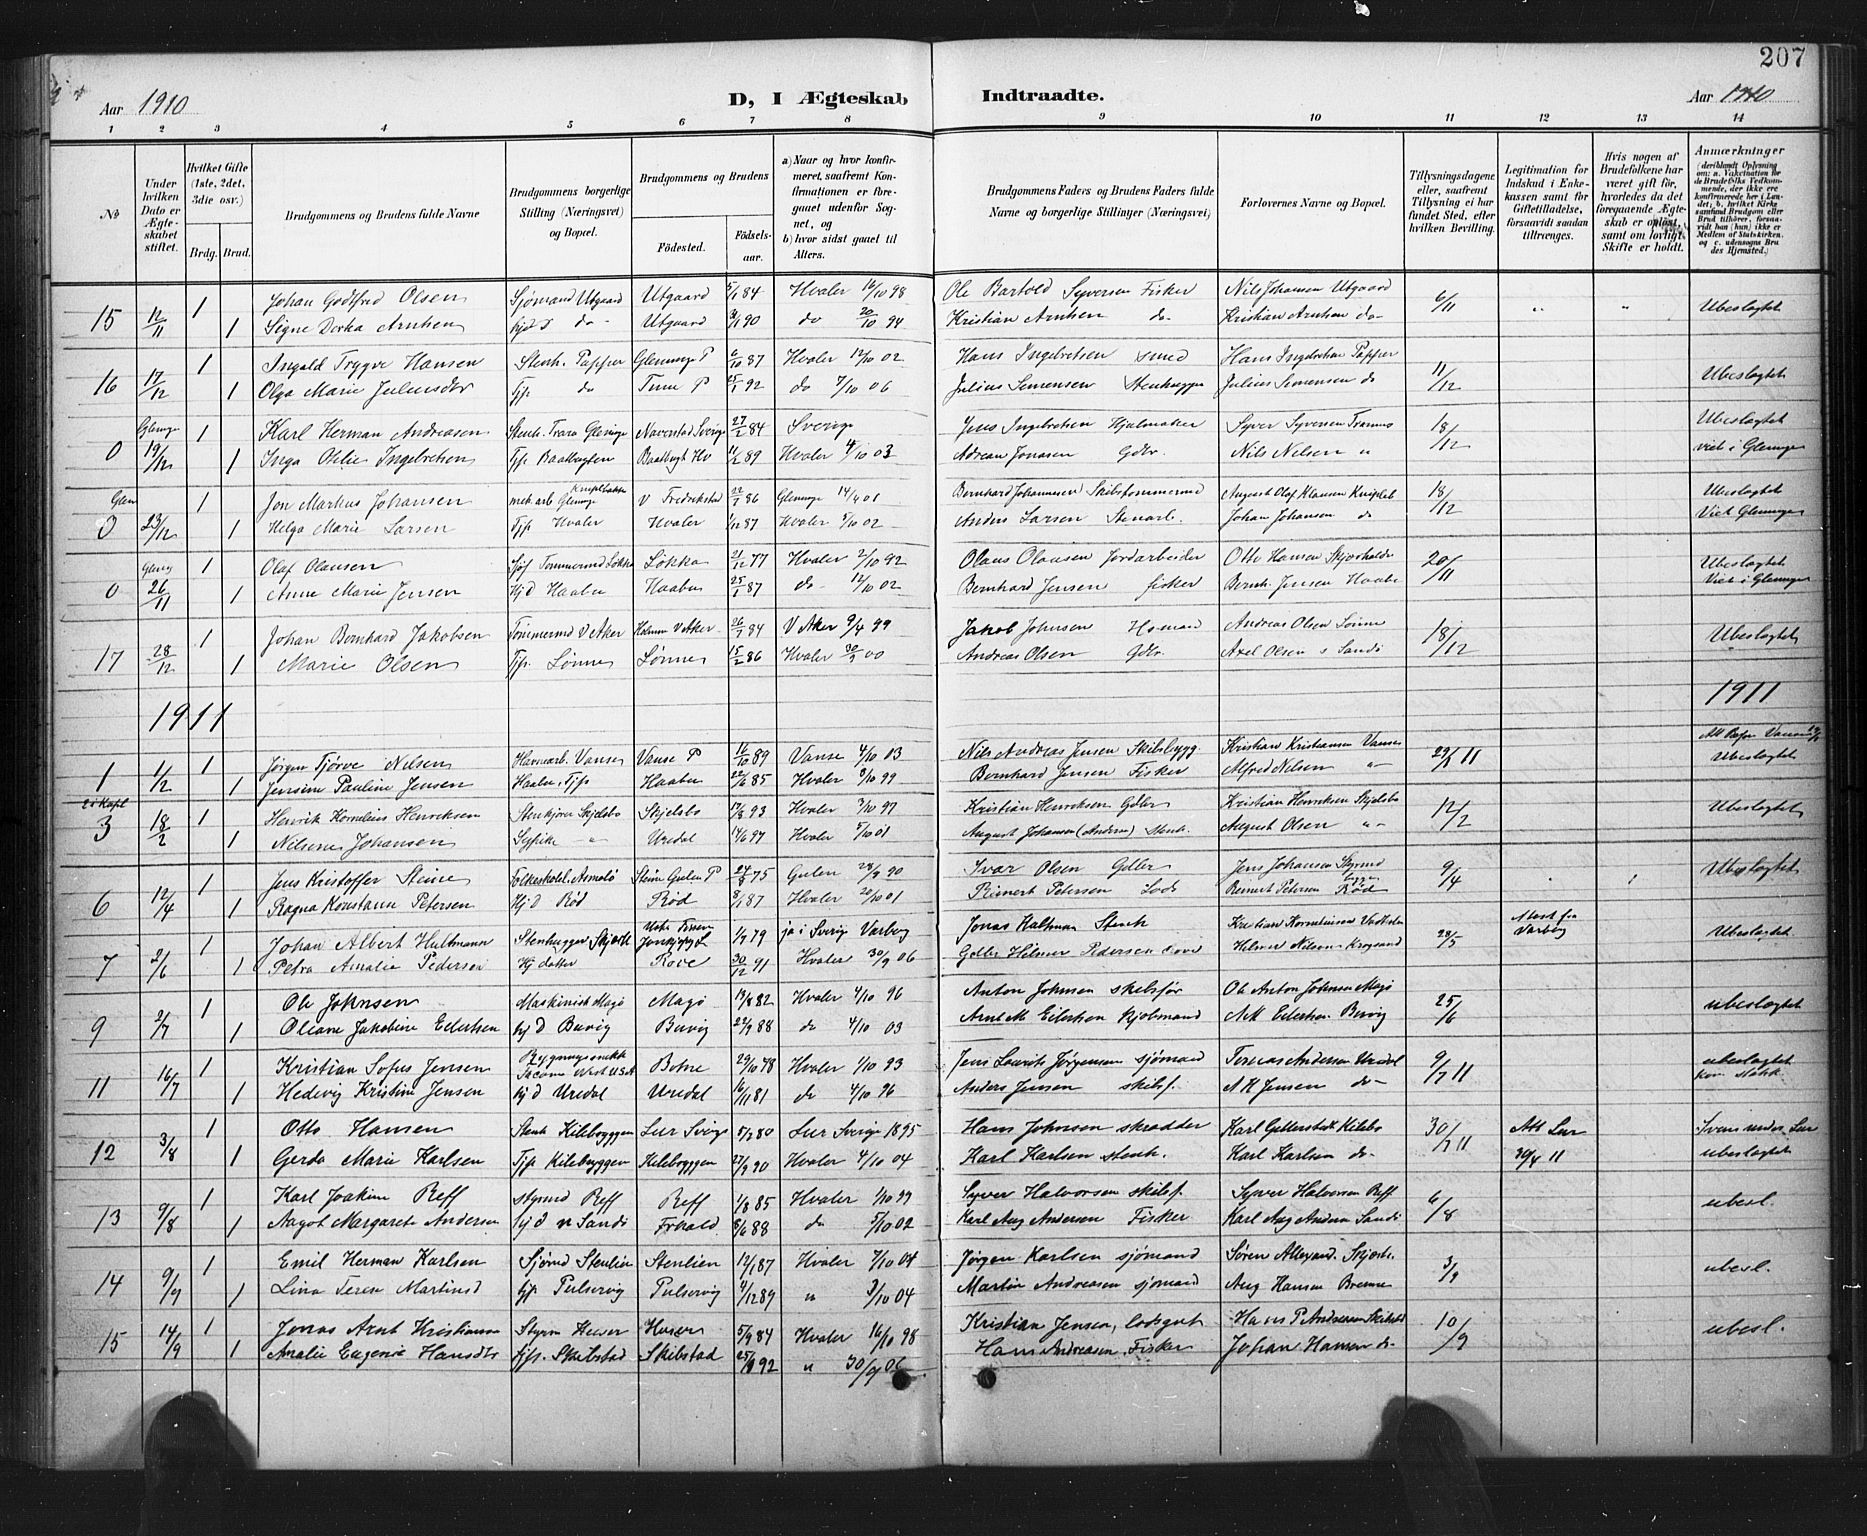 207
Aar 1910 D, I Ægteskab Indtraadte. Aar 1910
1 2 3 4 5 6 7 8 9 10 11 12 13 14
№
Under hvilken Dato er Ægteskabet stiftet.
Hvilket Gifte (1ste, 2det, 3die osv.)
Brdg. Brud.
Brudgommens og Brudens fulde Navne
Brudgommens borgerlige Stilling (Næringsvei) og Bopæl.
Brudgommens og Brudens
Fødested. Fødselsaar.
a) Naar og hvor konfirmeret, saafremt Konfirmationen er foregaaet udenfor Sognet, og
b) hvor sidst gaaet til Alters.
Brudgommens Faders og Brudens Faders fulde Navne og borgerlige Stillinger (Næringsvei)
Forlovernes Navne og Bopæl.
Tillysningsdagene eller, saafremt Tillysning ei har fundet Sted, efter hvilken Bevilling.
Legitimation for Indskud i Enkekassen samt for Giftetilladelse, forsaavidt saadan tiltrænges.
Hvis nogen af Brudefolkene har været gift før, hvorledes da det foregaaende Ægteskab er opløst, samt om lovligt Skifte er holdt.
Anmærkninger (deriblandt Oplysning om: a. Vaccination for de Brudefolks Vedkommende, der ikke ere konfirmerede her i Landet; b. hvilket Kirkesamfund Brudgom eller Brud tilhører, forsaavidt han (hun) ikke er Medlem af Statskirken, og c. udensogns Brudes Hjemsted.)
15 12/11 1 Johan Godtfred Olsen Sjømand Utgaard Utgaard 5/1 84 Hvaler 16/10 98 Ole Bartold Syversen Fisker Nils Johansen Utgaard 6/11 " " Ubeslægtet
1 Signe Dorka Arntsen hjd do Utgaard 90 do 94 Kristian Arntsen do Kristian Arntsen do
16 17/12 1 Ingald Trygve Hansen Stenh. Papper Glemminge P 6/10 87 Hvaler 12/10 02 Hans Ingebretsen smed Hans Ingebretsen Papper 11/12 Ubeslægtet
1 Olga Marie Juliusdtr Tjp do Tune P 92 do 7/10 06 Julius Simensen Stenhugger Julius Simensen do
Glemge
0 19/12 1 Karl Herman Andreasen Stenh. Trara Glemge Naverstad Sverige 27/2 84 Sverige Jens Ingebretsen Hjulmaker Syver Syversen 18/12 Ubeslægtet
1 Inga Othlie Ingebretsen Tjp Baatbugten Baatbugt Hv 11/2 89 Hvaler 4/10 03 Adrean Jonasen Gdbr. Nils Nelsen " viet i Glemge
Glem
0 23/12 1 Jon Markus Johansen mek arb Glemge V Fredrikstad 22/1 86 Glemge 14/4 01 Bernhard Johannesen Skibstømmermd August Olaf Klausen 18/12 Ubeslægtet
1 Helga Marie Larsen Tjp Hvaler Hvaler 1/12 87 Hvaler 5/10 02 Anders Larsen Stenarb. Johan Johansen do Viet Glemge
Glemg
0 26/11 1 Olaf Olausen Tømmermd Løkka Løkka 21/12 77 Hvaler 2/10 92 Olaus Olausen Jordarbeider Otto Hansen 20/11 Ubeslægtet
1 Anne Marie Jensen Hjd Haabu Haabu 25/1 87 do 12/10 02 Bernhard Jensen fisker Bernh. Jensen Haabu Viet i Glemge
17 28/12 1 Johan Bernhard Jakobsen Tømmermd V Aker V Aker 26/1 84 V Aker 9/4 99 Jakob Johnsen Andreas Olsen Lønne 18/12 Ubeslægtet
1 Marie Olsen Tjp. Lønne Lønne 15/2 86 Hvaler 30/9 00 Andreas Olsen Gdbr. Axel Olsen s Sandø
1911 1911
1 1/2 1 Jørgen Tjørve Nilsen Havnearb. Vanse Vanse P 16/10 89 Vanse 4/10 03 Nils Andreas Jensen Skibsbygg. Kristian Kristiansen Vanse 29/1 11 Ubeslægtet
1 Jensine Pauline Jensen Haabu Tjp Haabu 22/6 85 Hvaler 8/10 99 Bernhard Jensen Fisker Alfred Nelsen "
2 i Kapl
3 18/2 1 Henrik Kornelius Henriksen Stenkjører Skjelsbo Skjelsbo 17/8 93 Hvaler 3/10 97 Kristian Henriksen Gdbr Kristian Henriksen Skjelsbo 12/2 Ubeslægtet
1 Nilsine Johansen Sypike " Urdal Hvaler 5/10 01 August Johansen (Andersen) Stenh. August Olsen "
6 12/4 1 Jens Kristoffer Steine Folkeskolel. Asmalø Steine Gulen P 24/8 75 Gulen 28/9 90 Ivar Olsen Gdbr Jens Johansen 9/4 Ubeslægtet
1 Ragna Konstanse Petersen Hjd Rød Rød 8/1 87 Hvaler 20/10 01 Rinert Petersen Lods Reinert Petersen Rød
7 2/6 1 Johan Albert Hultmann Stenhugger 1/7 79 ja i Sverig Varbog Jonas Hultman Stenh Kristian Kornelinsen 28/5 Attest fra Varbog Ubeslægtet.
1 Petra Amalia Pedersen Hj datter Rove 30/12 91 Hvaler 30/9 06 Gdbr Hilmer Pedersen Rove Helmer Nilsen
9 2/7 1 Ole Johnsen Maskinist Magø Magø 19/8 82 Hvaler 4/10 96 Anton Johnsen skibsfør Ole Anton Johnsen Magø 25/6 ubeslægtet
1 Oliane Jakobine Eilertsen hjd Buvig Buvig 22/9 88 do 4/10 03 Arnt M Eilertsen kjøbmand A M Eilertsen Buvig
11 16/7 1 Kristian Sofus Jensen Bygningssnekk Tacoma West USA Botne 29/10 78 Hvaler 1/10 93 Jens Laurits Jørgensen sjømand Tomas Andersen Urdal 9/7 11 ubeslægtet
1 Hedevig Kristine Jensen hjd Urdal Urdal 16/11 81 do 4/10 96 Anders Jensen skibsf. A H Jensen do
12 3/8 1 Otto Hansen Stenh Kilebryggen Lur Sverig 5/2 80 Lur Sverige 1895 Hans Johnsen skrædder Karl Gullerstedt Kilebo 30/7 11 Att Lur Svensk unders. Lur
1 Gerda Marie Karlsen Tjp Kilebryggen Kilebryggen 27/9 90 Hvaler 4/10 04 Karl Karlsen stenh. Karl Karlsen do 30/4 11 ubeslægtet
13 9/8 1 Karl Joakim Reff styrmd Reff Reff 1/8 85 Hvaler 1/10 99 Syver Halvorsen skibsf. Syver Halvorsen Reff 6/8 ubesl.
1 Aagot Margarete Andersen hjd n Sandø 8/6 88 do 5/10 02 Karl Aug Andersen Fisker Karl Aug Andersen Sandø
14 9/9 1 Emil Herman Karlsen Sjømd Stenlien Stenlien 12/1 87 Hvaler 7/10 04 Jørgen Karlsen sjømand Søren 3/9 ubesl.
1 Lina Terese Martinsd tjp Pulservig Pulservig 4/12 89 " 3/10 04 Martin Andreasen sjømand Aug Hansen Bremne
15 14/9 1 Jonas Arnt Kristiansen Styrm Huser Huser 5/9 84 Hvaler 16/10 98 Kristian Jensen, lodsgut Hans P Andersen Skibstd 10/9 ubesl.
1 Amalie Eugenie Hansdtr tjp. Skibstad Skibstad 92 " 30/9 06 Hans Andreasen, Fisker Johan Hansen do